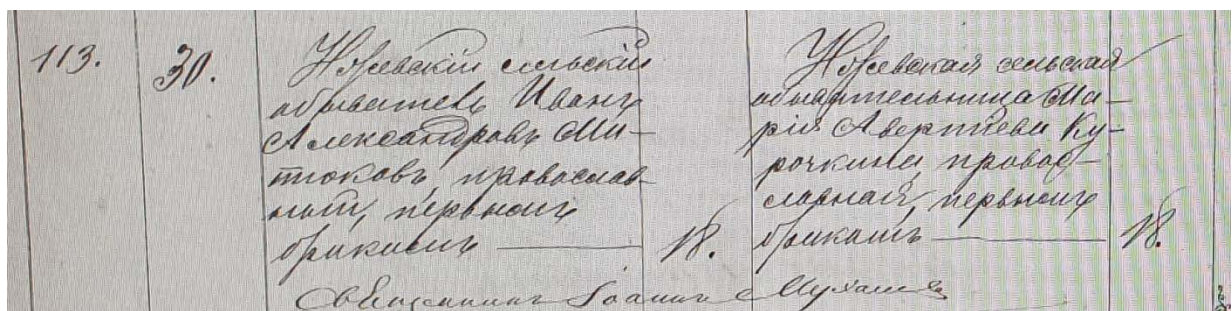 113. 30.
Ижевскій сельскій
обыватель Иванъ
Александровъ Ми-
тюковъ, православ-
ный, первымъ
бракомъ — 18.
Ижевская сельская
обывательница Ма-
рія Аверкіева Ку-
рочкина, правос-
лавная, первымъ
бракомъ — 18.
Священникъ Іоаннъ